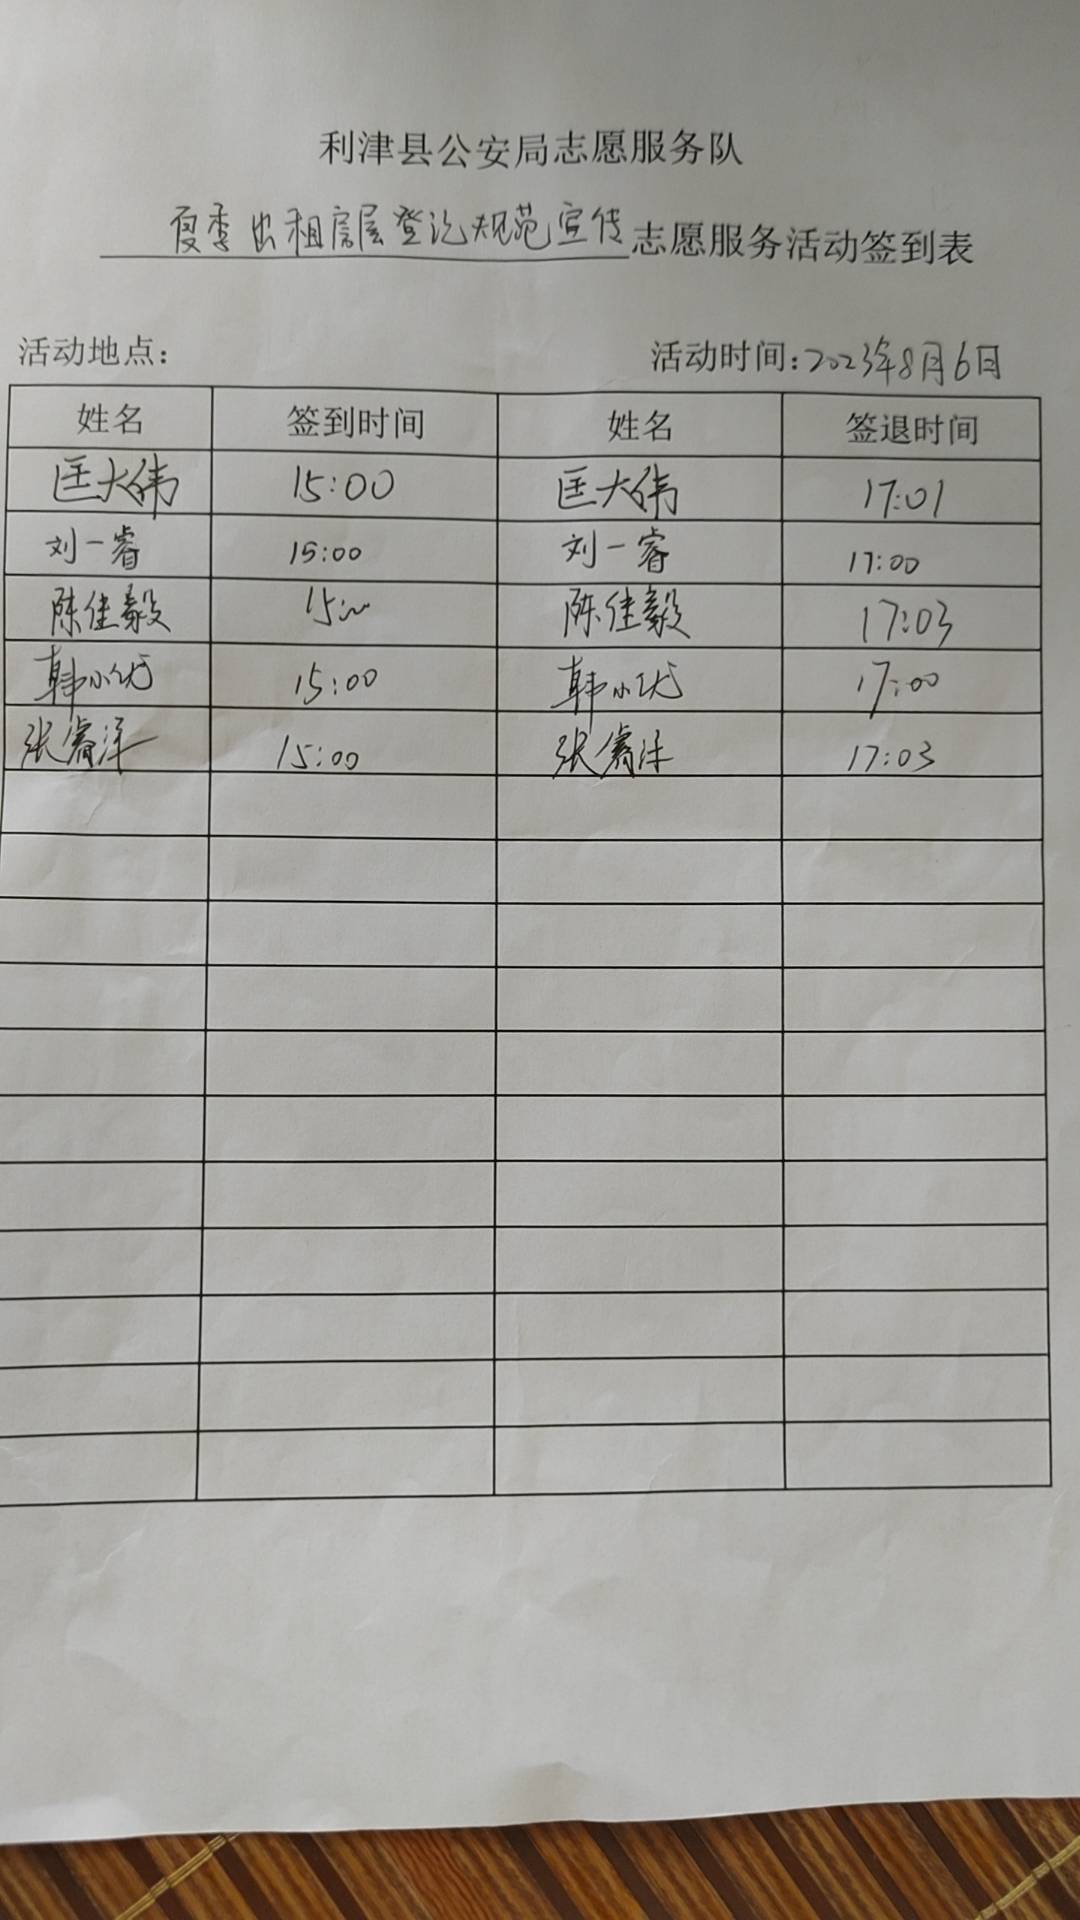 利津县公安局志愿服务队
夏季出租房屋登记规范宣传志愿服务活动签到表
活动地点： 活动时间：2023年8月6日
姓名 签到时间 姓名 签退时间
匡大伟 15:00 匡大伟 17:01
刘一睿 15:00 刘一睿 17:00
陈佳毅 15:00 陈佳毅 17:03
韩小优 15:00 韩小优 17:00
张睿洋 15:00 张睿洋 17:03